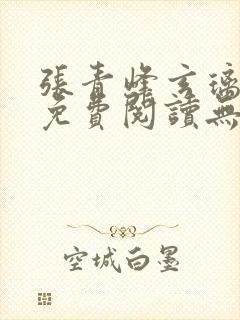 張青峰玄璃
免費閱讀無
空城白墨